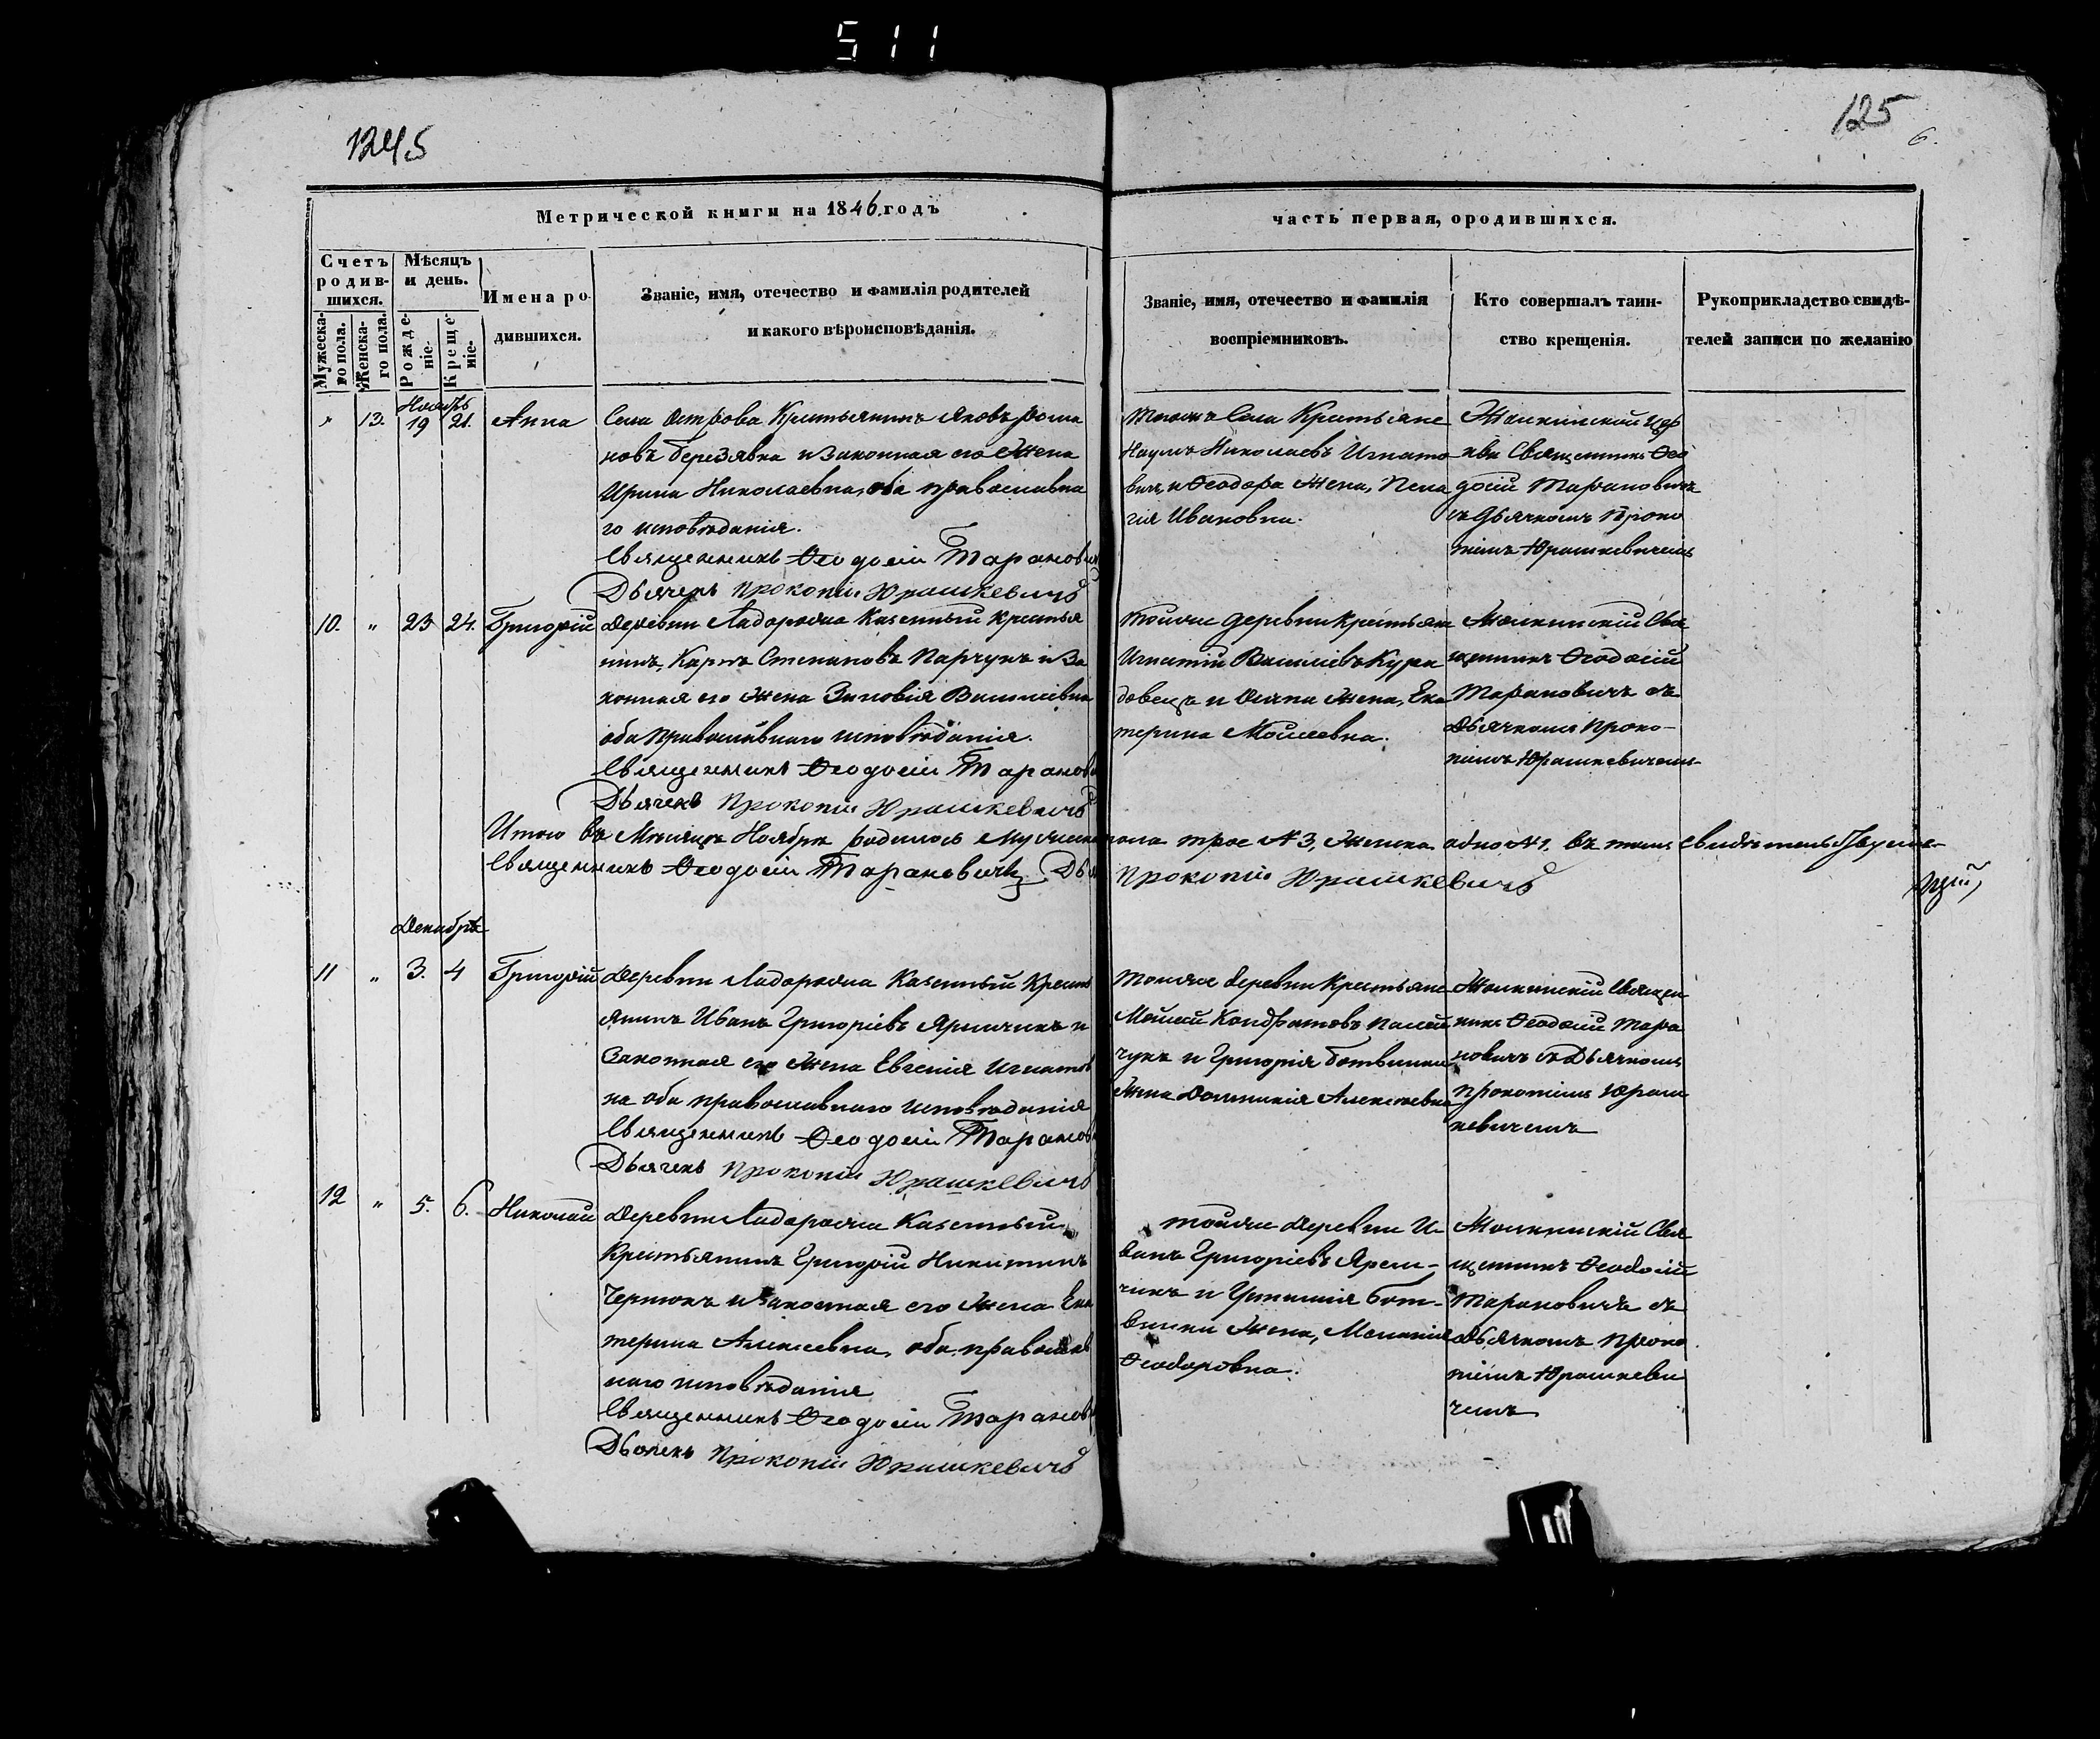 511
1245
125
6.
Метрической книги на 1846. годъ
часть первая, о родившихся.
Счетъ родив-шихся.
Мѣсяцъ и день.
Имена ро-дившихся.
Званіе, имя, отечество и фамилія родителей
и какого вѣроисповѣданія.
Званіе, имя, отечество и фамилія
воспріемниковъ.
Кто совершалъ таин-
ство крещенія.
Рукоприкладство свидѣ-
телей записи по желанію
Мужеска-го пола.
Женска-го пола.
Рожде-ніе.
Креще-ніе.
Ноябрь
" 13. 19 21. Анна
Села Острова Крестьянинъ Яковъ Рома
новъ Березявка и Законная его Жена
Ирина Николаевна, оба православна
го исповѣданія.
Священникъ Ѳеодосій Таранович
Дьячекъ Прокопій Юрашкевичъ
Тогожъ Села Крестьяне
Наумъ Николаевъ Игнато
вичъ, и Ѳеодора Жена, Пела
гія Ивановна.
цер
кви Священникъ Ѳео
досій Тарановичъ
съ Дьячкомъ Проко
піемъ Юрашкевичемъ
10. " 23 24. Григорій
Деревни Казенный Крестья
нинъ, Карпъ Степановъ Парчукъ и За
конная его Жена Зиновія Васильевна
оба православнаго исповѣданія.
Священникъ Ѳеодосій Таранови
Дьячекъ Прокопій Юрашкевичъ
Тойже деревни Крестьяне
Игнатій Васильевъ Кура
довецъ и Жена, Ека
терина Моисеевна.
Свя
щенникъ Ѳеодосій
Тарановичъ съ
Дьячкомъ Проко-
піемъ Юрашкевичемъ
Итого въ Мѣсяцѣ Ноябрѣ родилось Мужеска пола трое №3, Женска одно №1. въ томъ свидѣтельствуемъ
Священникъ Ѳеодосій Тарановичъ Дья Прокопій Юрашкевичъ
Декабрь
11 " 3. 4 Григорій
Деревни Казенный Кресть
янинъ Иванъ Григоріевъ Яремчикъ и
Законная его Жена Евгенія Игнатов
на оба православнаго исповѣданія
Священникъ Ѳеодосій Таранов
Дьячекъ Прокопій Юрашкевичъ
Тойже деревни Крестьяне
Моисей Кондратовъ
чукъ и Григорія Ботвинки
Жена Доминикія Алексѣевна
Священ
никъ Ѳеодосій Тара
новичъ съ Дьячкомъ
Прокопіемъ Юраш
кевичемъ
12 " 5. 6. Николай
Деревни Казенный
Крестьянинъ Григорій Никитинъ
и законная его Жена Ека
терина Алексеевна, оба православ
наго исповѣданія
Священникъ Ѳеодосій Таранов
Дьячекъ Прокопій Юрашкевичъ
тойже деревни И-
ванъ Григоріевъ Ярем-
чикъ и Бот-
винки Жена, Меланія
Ѳеодоровна.
Свя
щенникъ Ѳеодосій
Тарановичъ съ
Дьячкомъ Проко
піемъ Юрашкеви
чемъ